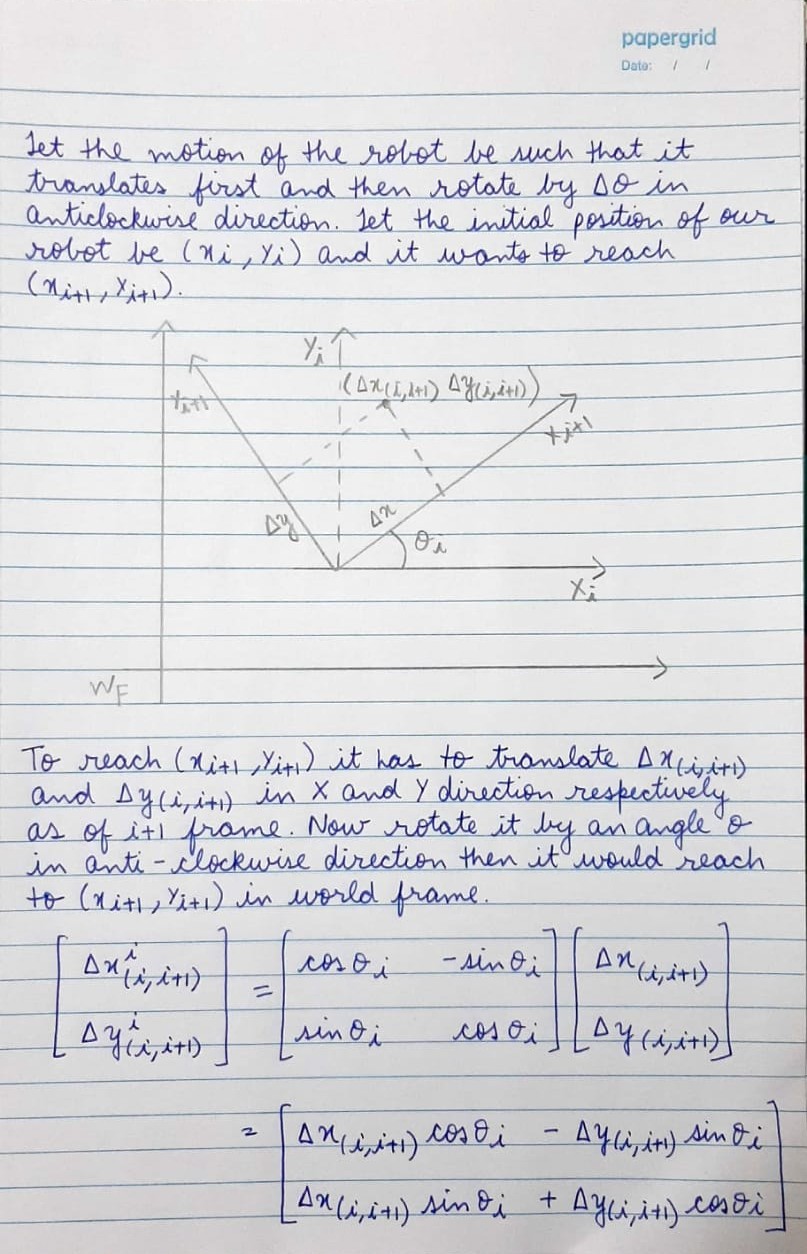 papergrid
Date: / /
Let the motion of the robot be such that it
translates first and then rotate by Δθ in
anticlockwise direction. Let the initial position of our
robot be (xi, Yi) and it wants to reach
(xi+1, Yi+1).
Yi
(Δx(i,i+1) Δy(i,i+1))
Yi+1
Xi+1
Δy
Δx
θi
Xi
WF
To reach (xi+1, Yi+1) it has to translate Δx(i,i+1)
and Δy(i,i+1) in X and Y direction respectively
as of i+1 frame. Now rotate it by an angle θ
in anti-clockwise direction then it would reach
to (xi+1, Yi+1) in world frame.
[Δx^i(i,i+1)] = [cosθi -sinθi] [Δx(i,i+1)]
[Δy^i(i,i+1)] [sinθi cosθi] [Δy(i,i+1)]
= [Δx(i,i+1) cosθi - Δy(i,i+1) sinθi]
[Δx(i,i+1) sinθi + Δy(i,i+1) cosθi]